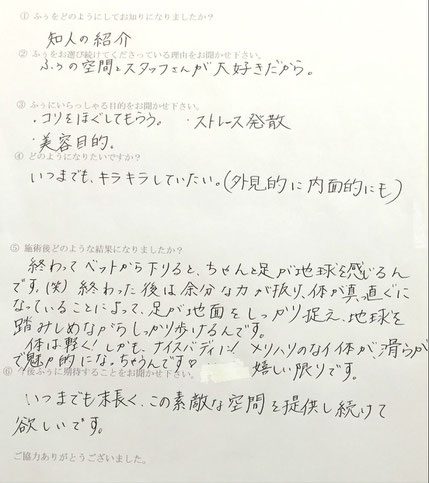 ① ふぅをどのようにしてお知りになりましたか?
知人の紹介
② ふぅをお選び続けてくださっている理由をお聞かせ下さい。
ふぅの空間とスタッフさんが大好きだから。
③ ふぅにいらっしゃる目的をお聞かせ下さい。
・コリをほぐしてもらう。 ・ストレース発散
・美容目的。
④ どのようになりたいですか?
いつまでも、キラキラしていたい。(外見的に内面的にも)
⑤ 施術後どのような結果になりましたか?
終わってベットから下りると、ちゃんと足が地球を感じるん
です。(笑) 終わった後は余分な力が抜け、体が真っ直ぐに
なっていることによって、足が地面をしっかり捉え、地球を
踏みしめながらしっかり歩けるんです。
体は軽く!しかも、ナイスバディに! メリハリのない体が、滑らか
で魅力的になっちゃうんです♡ 嬉しい限りです。
⑥ 今後ふぅに期待することをお聞かせ下さい。
いつまでも末長く、この素敵な空間を提供し続けて
欲しいです。
ご協力ありがとうございました。